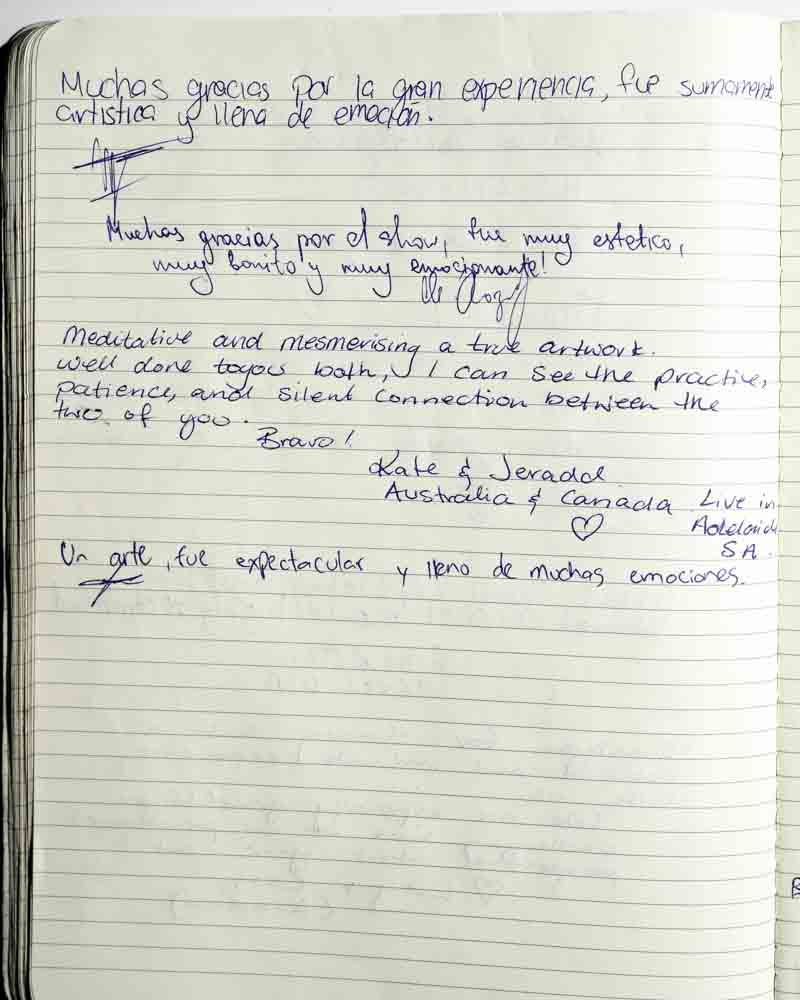 Muchas gracias por la gran experiencia, fue sumamente
artistica y llena de emoción.
Muchas gracias por el show, fue muy estetico,
muy bonito y muy emocionante!
Meditative and mesmerising a true artwork.
Well done to you both, I can see the practive,
patience, and silent connection between the
two of you.
Bravo!
Kate & Jeradd
Australia & Canada Live in
Adelaide
SA.
Un arte, fue expectacular y lleno de muchas emociones.